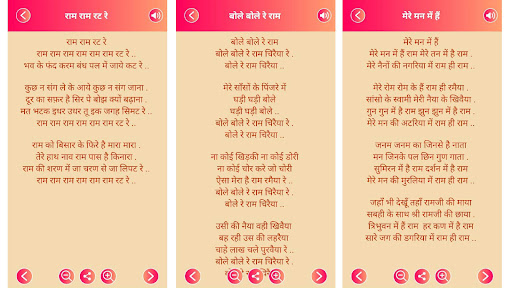 राम राम रट रे
राम राम रट रे
राम राम राम राम राम राम रट रे ..
भव के फंद करम बंध पल में जाये कट रे ..
कुछ न संग ले के आये कुछ न संग जाना .
दूर का सफ़र है सिर पे बोझ क्यों बढ़ाना .
मत भटक इधर उधर तू इक जगह सिमट रे ..
राम राम राम राम राम राम रट रे ..
राम को बिसार के फिरे है मारा मारा .
तेरे हाथ नाव राम पास है किनारा .
राम की शरण में जा चरण से जा लिपट रे ..
राम राम राम राम राम राम रट रे ..
बोले बोले रे राम
बोले बोले रे राम
बोले बोले रे राम चिरैया रे .
बोले रे राम चिरैया रे ..
मेरे साँसों के पिंजरे में
घड़ी घड़ी बोले
घड़ी घड़ी बोले ..
बोले बोले रे राम चिरैया रे .
बोले रे राम चिरैया रे ..
ना कोई खिड़की ना कोई डोरी
ना कोई चोर करे जो चोरी
ऐसा मेरा है राम रमैया रे ..
बोले बोले रे राम चिरैया रे .
बोले रे राम चिरैया रे ..
उसी की नैया वही खिवैया
बह रही उस की लहरैया
चाहे लाख चले पुरवैया रे ..
बोले बोले रे राम चिरैया रे .
मेरे मन में हैं
मेरे मन में हैं
मेरे मन में हैं राम मेरे तन में है राम .
मेरे नैनों की नगरिया में राम ही राम ..
मेरे रोम रोम के हैं राम ही रमैया .
सांसो के स्वामी मेरी नैया के खिवैया .
गुन गुन में है राम झुन झुन में है राम .
मेरे मन की अटरिया में राम ही राम ..
जनम जनम का जिनसे है नाता
मन जिनके पल छिन गुण गाता .
सुमिरन में है राम दर्शन में है राम
मेरे मन की मुरलिया में राम ही राम ..
जहाँ भी देखूँ तहाँ रामजी की माया
सबही के साथ श्री रामजी की छाया .
त्रिभुवन में हैं राम हर कण में है राम
सारे जग की डगरिया में राम ही राम ..